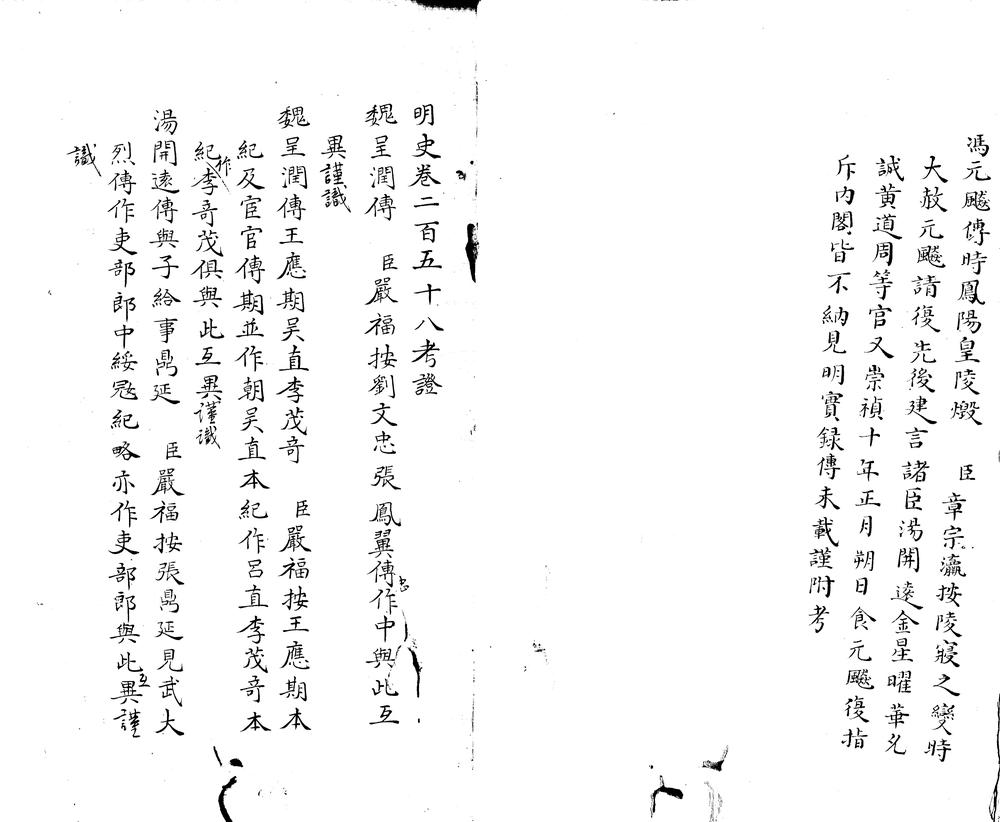 馮元飈傳時鳳陽皇陵燬　臣章宗瀛按陵寢之變時
大赦元飈請復先後建言諸臣湯開遠金星曜華允
誠黄道周等官又崇禎十年正月朔日食元飈復指
斥内閣皆不納見明實録傳未載謹附考
明史卷二百五十八考證
魏呈潤傳　臣嚴福按劉文忠張鳳翼傳作中與此互
異謹識
魏呈潤傳王應期吴直李茂竒　臣嚴福按王應期本
紀及宦官傳期並作朝吴直本紀作呂直李茂竒本
紀作李竒茂俱與此互異謹識
湯開遠傳與子給事鼎延　臣嚴福按張鼎延見武大
烈傳作吏部郎中綏冦紀略亦作吏部郎與此互異謹
識